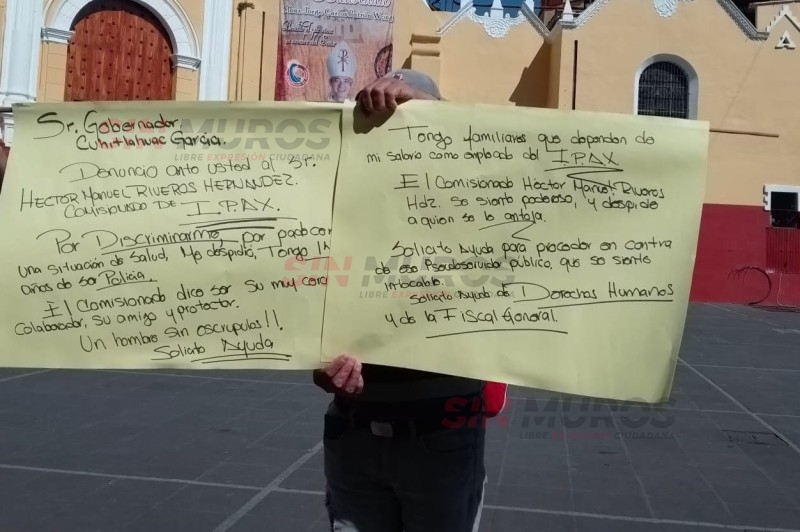 Sr. Gobernador
Cuhitlahuac Garcia.
Denuncio ante usted al Sr.
HECTOR MANUEL RIVEROS HERNANDEZ.
COMISIONADO DE I.PAX.
Por Discriminarme, por padecer
una situación de salud, Me despidió, Tengo
años de ser Policia.
El Comisionado dice ser su muy
Colaborador, su amigo y protector.
Un hombre sin escrupulos!!
Solicito Ayuda
Tengo familiares que dependen de
mi salario como empleado del I.PAX
El Comisionado Héctor Manuel Riveros
Hdz. se siente poderoso, y despide
a quien se le antoja.
Solicito Ayuda para proceder en contra
de ese Pseudoservidor público, que se siente
intocable.
Solicito Ayuda de Derechos Humanos
y de la Fiscal General.
SIN MUROS
LIBRE EXPRESIÓN CIUDADANA
SIN MUROS
LIBRE EXPRESIÓN CIUDADANA
SIN MUROS
LIBRE EXPRESIÓN CIUDADANA